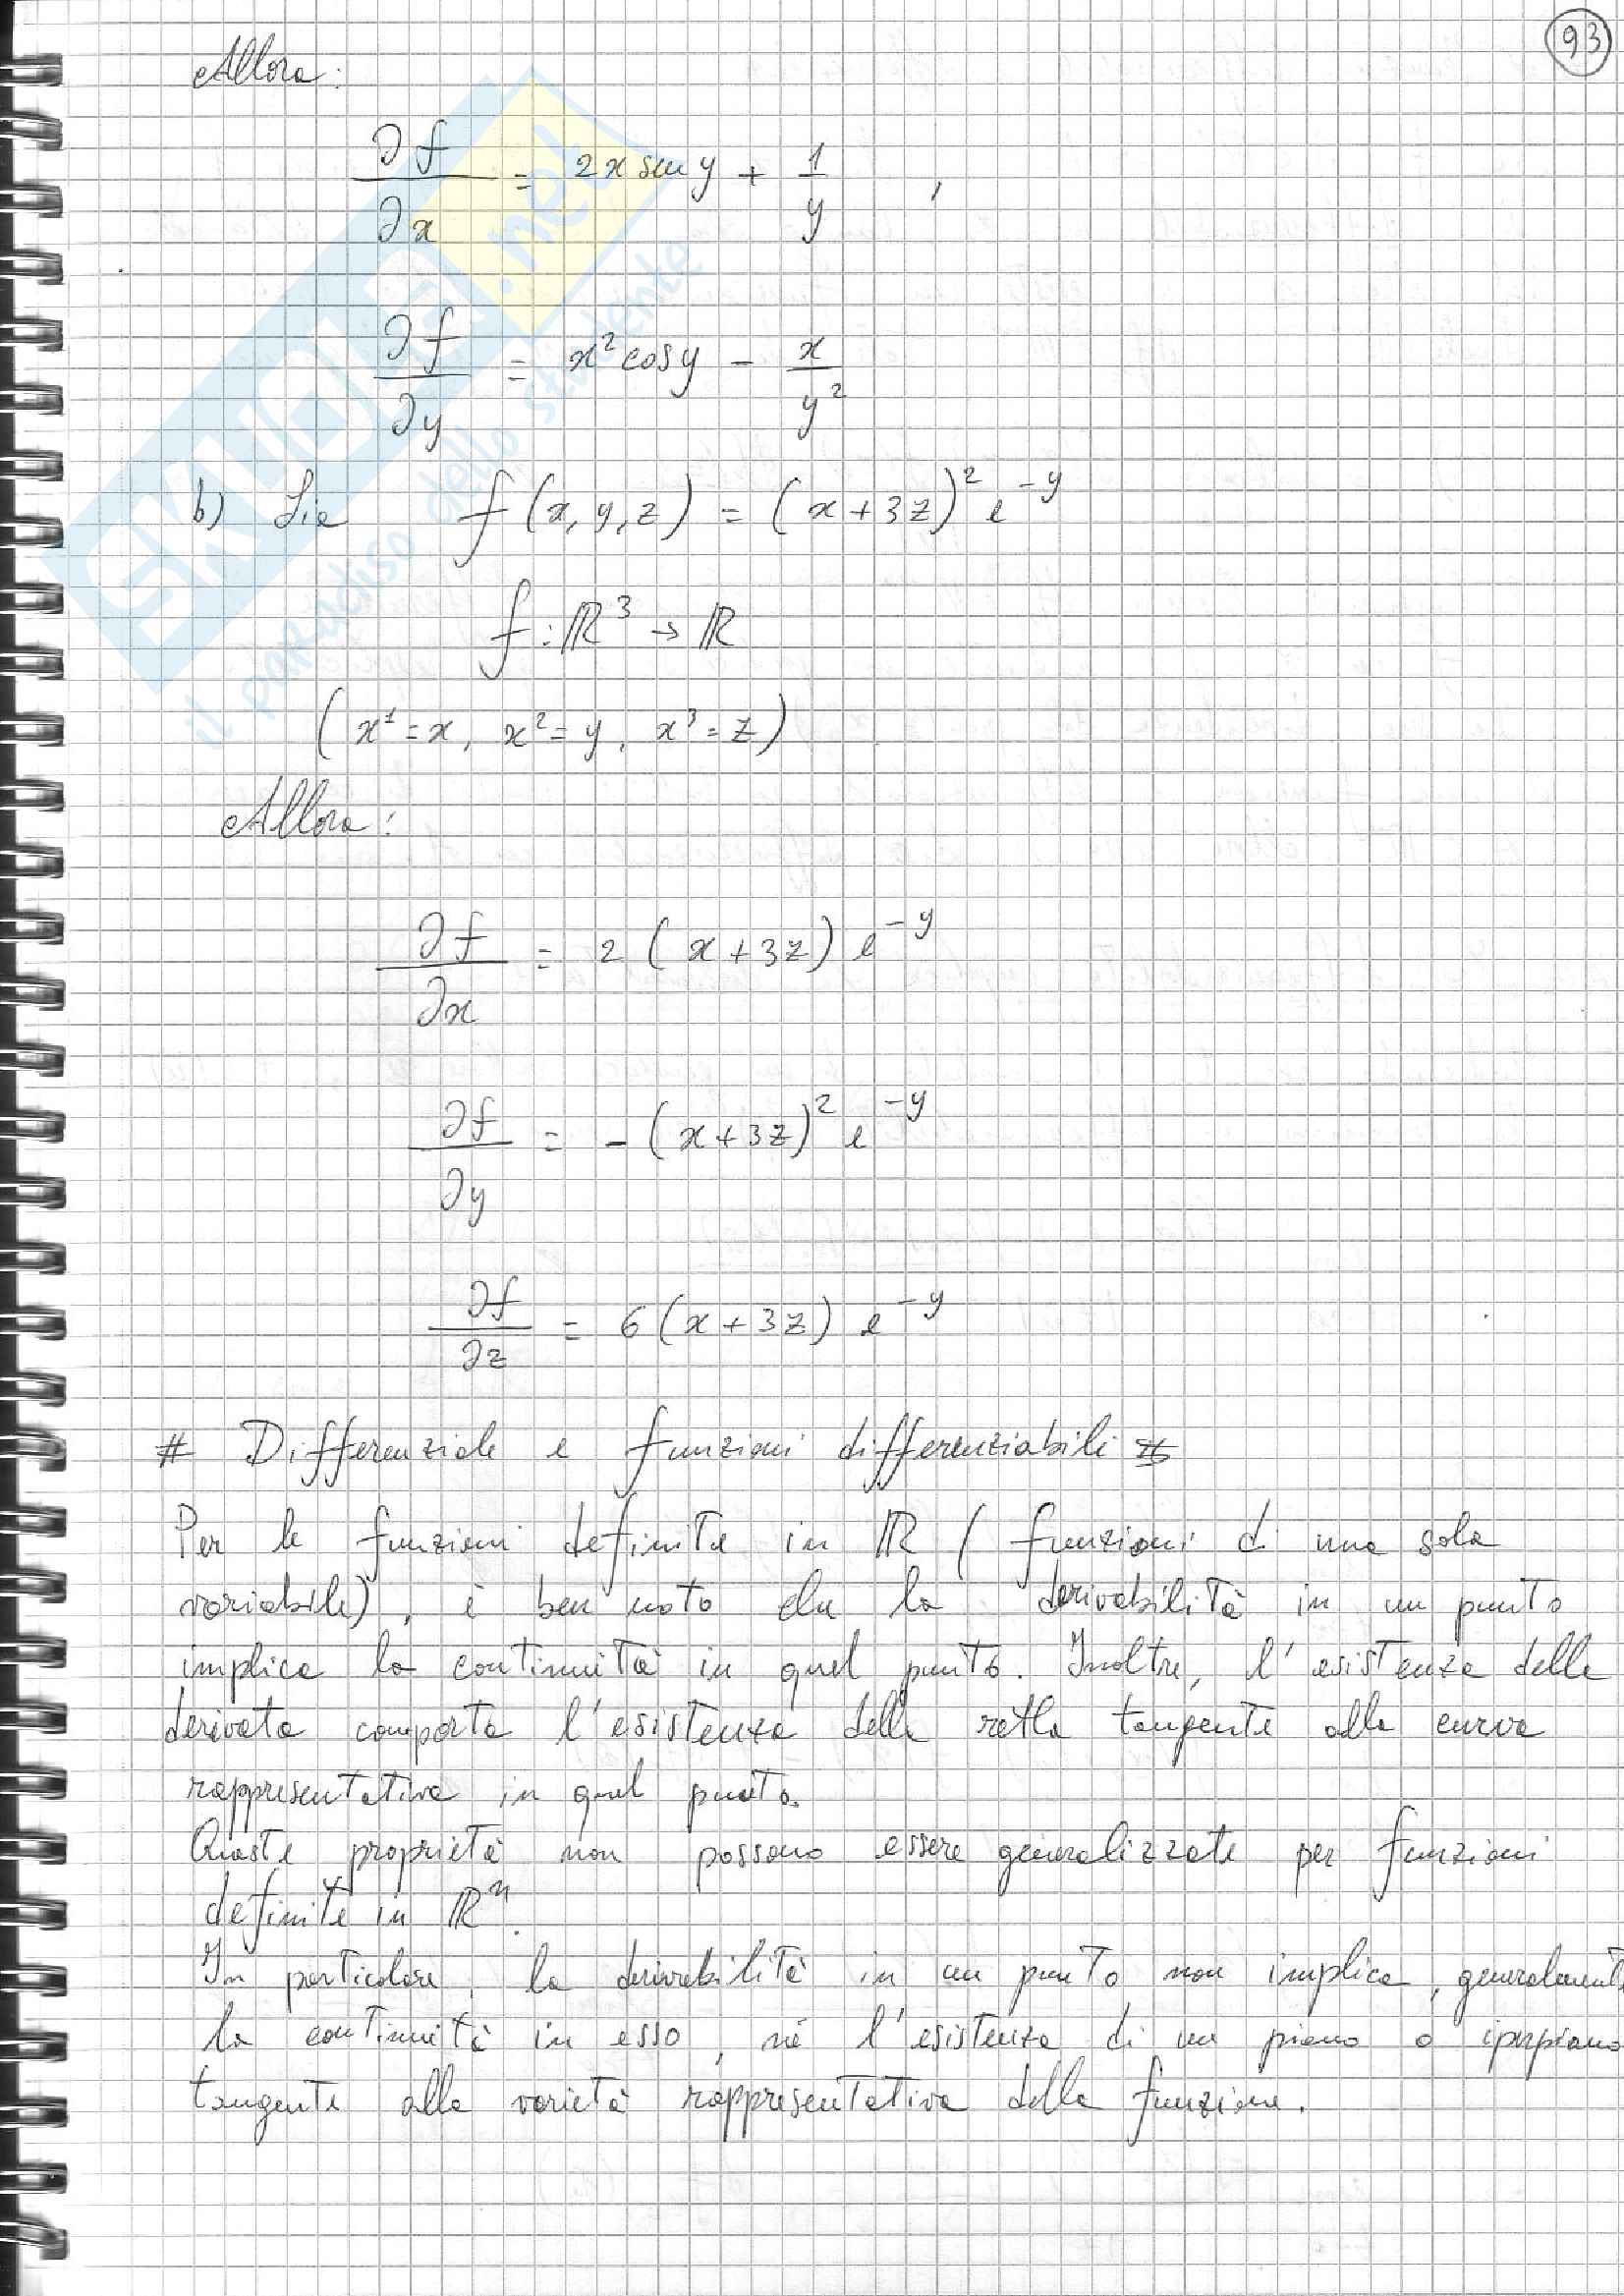 93
Allora:
∂f/∂x = 2x sen y + 1/y ,
∂f/∂y = x² cos y - x/y²
b) Sia f(x, y, z) = (x + 3z)² e^-y
f: ℝ³ → ℝ
(x¹ = x, x² = y, x³ = z)
Allora:
∂f/∂x = 2 (x + 3z) e^-y
∂f/∂y = - (x + 3z)² e^-y
∂f/∂z = 6 (x + 3z) e^-y
# Differenziale e funzioni differenziabili #
Per le funzioni definite in ℝ (funzioni di una sola
variabile), è ben noto che la derivabilità in un punto
implica la continuità in quel punto. Inoltre, l'esistenza della
derivata comporta l'esistenza della retta tangente alla curva
rappresentativa in quel punto.
Queste proprietà non possono essere generalizzate per funzioni
definite in ℝⁿ.
In particolare, la derivabilità in un punto non implica, generalmente
la continuità in esso, né l'esistenza di un piano o iperpiano
tangente alla varietà rappresentativa della funzione.
SKUOLA.net
il paradiso dello studente